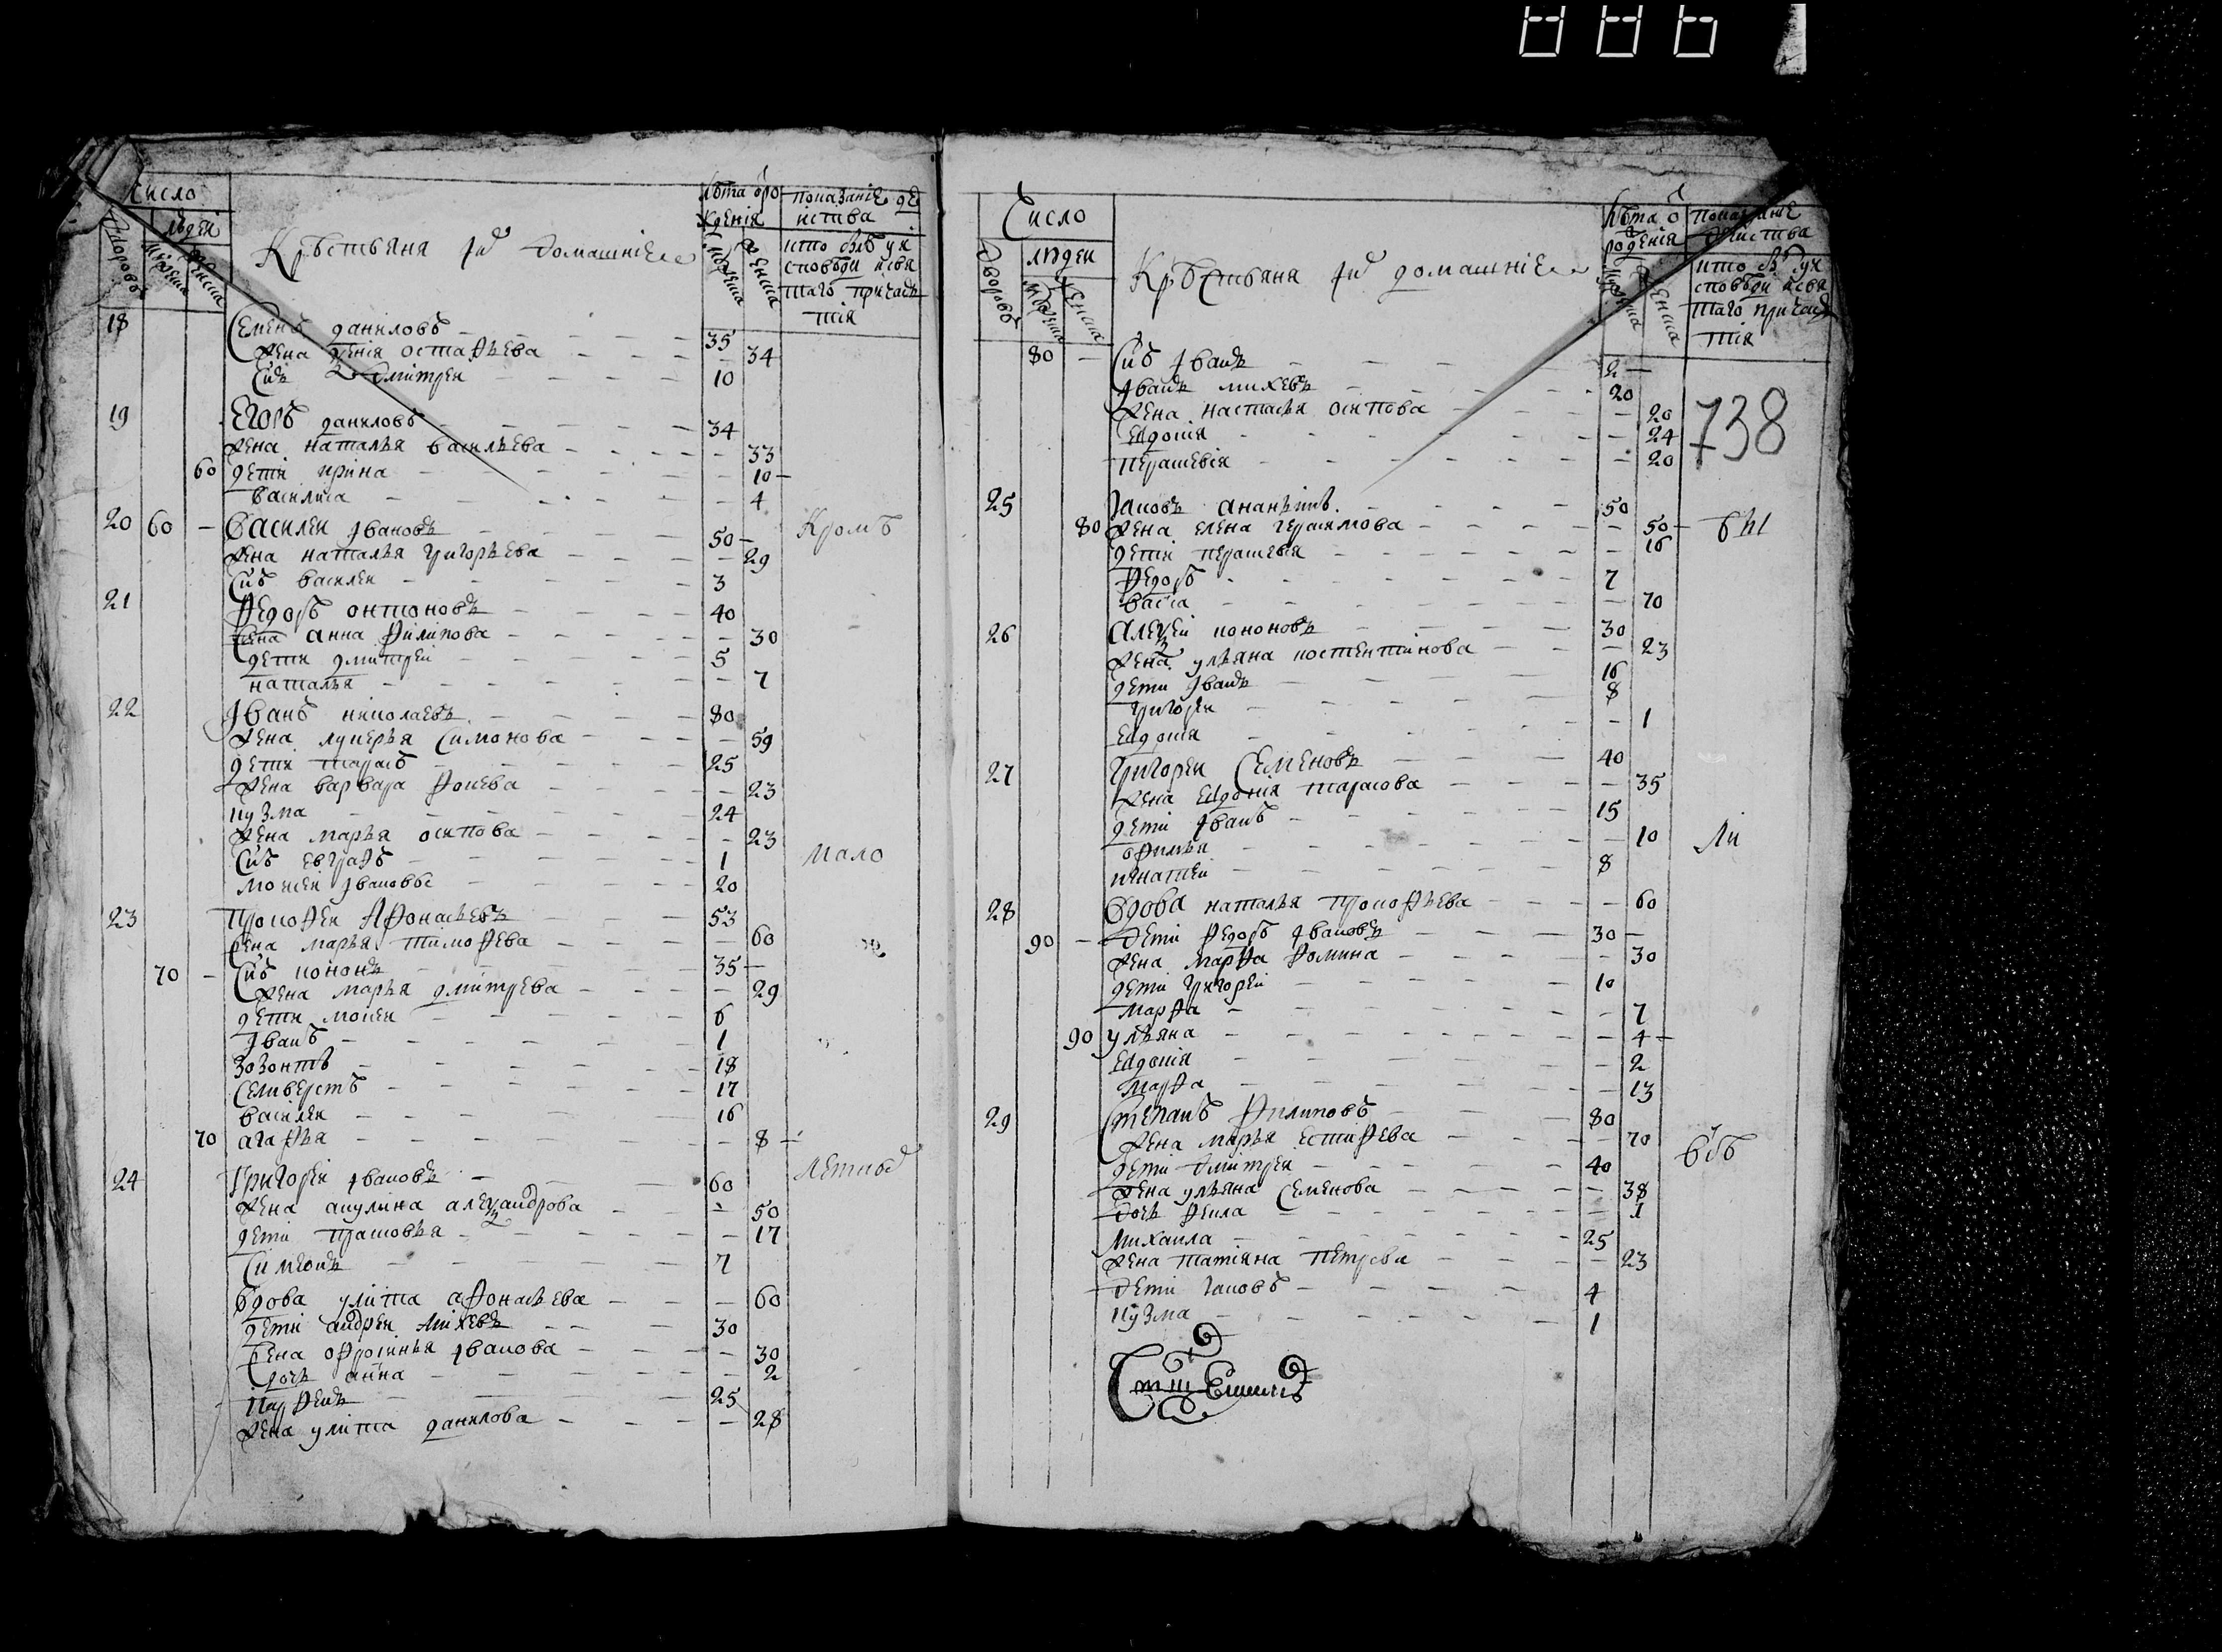 Число
Людеи
Дворовъ
Мужеска
Женска
Крѣстьяня и домашние
Лѣта о рождения
Мужеска
Женска
показание действа
кто былъ у исповѣди и святаго причастия
18 Семенъ даниловъ 35
жена ксения остафьева 34
Снъ Дмитреи 10
19 Егоръ даниловъ 34
жена наталья васильева 33
60 дети ирина 10
василиса 4
20 60 Василеи Ивановъ 50 Кромѣ
жена наталья григорьева 29
Снъ василеи 3
21 Федоръ онтоновъ 40
жена анна филипова 30
дети дмитреи 5
наталья 7
22 Иванъ николаевъ 80
жена лукерья симонова 59
дети тарасъ 25
жена варвара фокева 23
кузма 24
жена марья осипова 23
Снъ евграфъ 1 мало
моисеи Ивановъ 20
23 Прокофеи Афонасьевъ 53
жена марья тимофева 60
70 Снъ кононъ 35
жена марья дмитрева 29
дети мокеи 6
Иванъ 1
Зозонтъ 18
Селиверстъ 17
василеи 16
70 агафья 8
24 Григореи Ивановъ 60 летных
жена акулина александрова 50
дети прасковья 17
Симеонъ 7
вдова улита афонасьева 60
дети андреи михевъ 30
жена офросинья Иванова 30
дочь анна 2
парфенъ 25
жена улита данилова 28
Число
людеи
Дворовъ
Мужеска
Женска
Крѣстьяня и домашние
Лѣта о рождения
Мужеска
Женска
показание действа
кто былъ у исповѣди и святаго причастия
80 Снъ Иванъ 2
Иванъ михевъ 20
жена настасья осипова 20
738
Евдокия 24
перасковья 20
25 Iаковъ ананьинъ 50
80 жена елена герасимова 50 бы
дети перасковья 16
федоръ 7
васса 10
26 Алексеи кононовъ 30
жена ульяна костентинова 23
дети Иванъ 16
григореи 8
Евдокия 1
27 Григореи Семеновъ 40
жена Евдокия тарасова 35
дети Иванъ 15
офимья 10 ли
игнатеи 8
28 Вдова наталья прокофьева 60
90 дети федоръ Ивановъ 30
жена марфа фомина 30
дети григореи 10
марфа 7
90 ульяна 4
Евдокия 2
марфа 13
29 Степанъ филиповъ 80
жена марья естифева 70
всѣ
дети дмитреи 40
жена ульяна Семенова 38
дочь фекла 1
михаила 25
жена татияна петрова 23
дети Iаковъ 4
кузма 1